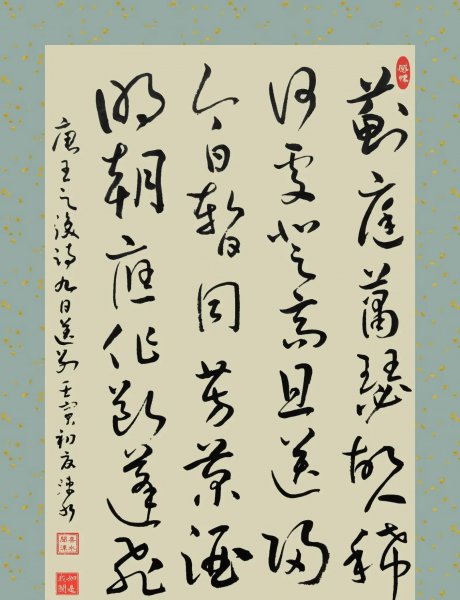 薊庭蕭瑟故人稀
何處登高且送歸
今日暫同芳菊酒
明朝應作斷蓬飛
唐王之渙詩九日送別壬寅初夏
如是我聞